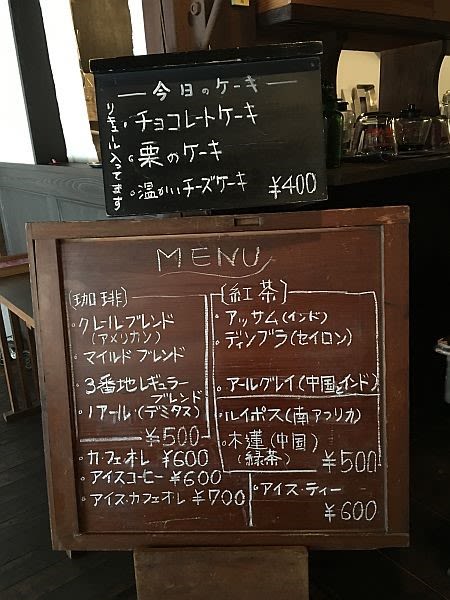 今日のケーキ
リキュール入ってます
・チョコレートケーキ
・栗のケーキ
・温かいチーズケーキ
¥400
MENU
[珈琲]
・クレールブレンド
(アメリカン)
・マイルドブレンド
・3番地レギュラー
ブレンド
・ノアール(デミタス)
¥500
・カフェオレ ¥600
・アイスコーヒー ¥600
・アイス・カフェオレ ¥700
[紅茶]
・アッサム(インド)
・ディンブラ(セイロン)
・アールグレイ(中国とインド)
・ルイボス(南アフリカ)
・木蓮(中国)
(緑茶)
¥500
・アイス・ティー
¥600